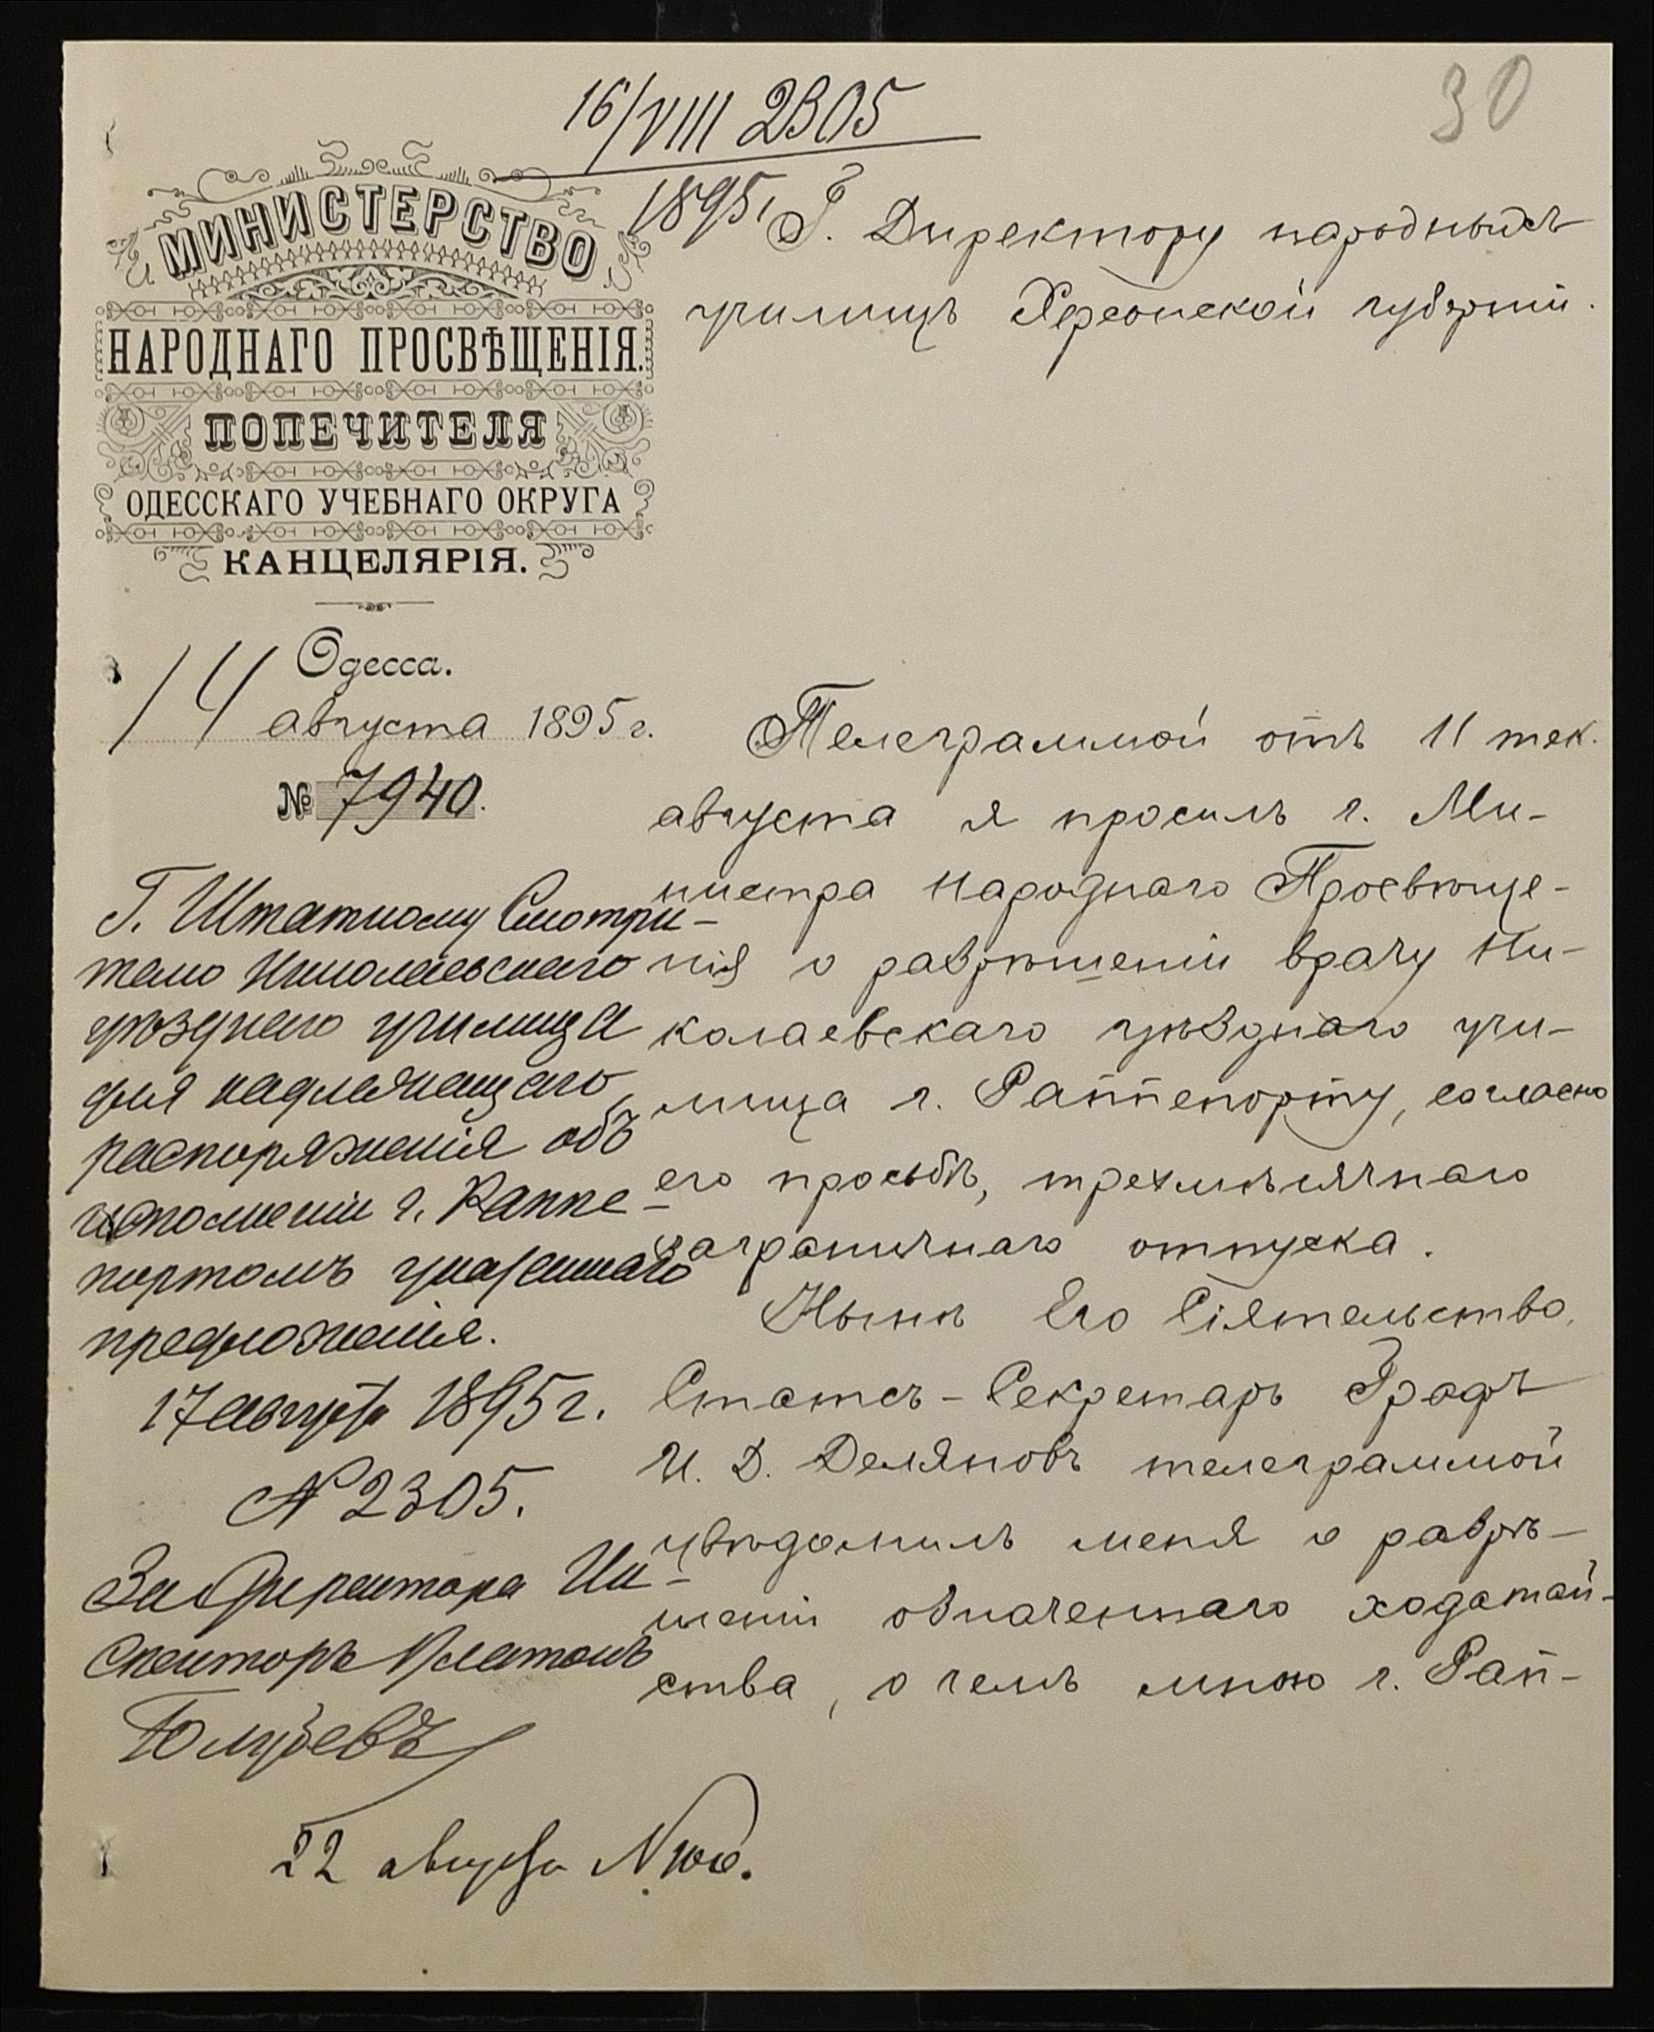 16/VIII 2305
1895,
30
МИНИСТЕРСТВО
НАРОДНАГО ПРОСВѢЩЕНІЯ.
ПОПЕЧИТЕЛЯ
ОДЕССКАГО УЧЕБНАГО ОКРУГА
КАНЦЕЛЯРІЯ.
Одесса.
14 августа 1895 г.
№ 7940.
Г. Директору народныхъ
училищъ Херсонской губерніи.
Телеграммой отъ 11 тек.
августа я просилъ г. Ми-
нистра Народнаго Просвѣще-
нія о разрѣшеніи врачу Ни-
колаевскаго уѣзднаго учи-
лища г. Раппепорту, согласно
его просьбѣ, трехмѣсячнаго
заграничнаго отпуска.
Нынѣ Его Сіятельство,
Статсъ-Секретарь Графъ
И. Д. Деляновъ телеграммой
увѣдомилъ меня о разрѣ-
шеніи означеннаго ходатай-
ства, о чемъ мною г. Рап-
Г. Штатному Смотри-
телю Николаевскаго
уѣзднаго училища
для надлежащаго
распоряженія объ
исполненіи г. Раппе-
портомъ указаннаго
предложенія.
17 августа 1895 г.
№ 2305.
За Директора Ин-
спекторъ Платонъ
22 августа №